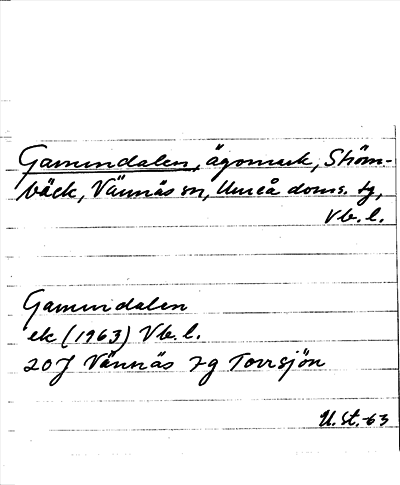 Gammdalen, ägomark, Ström-
bäck, Vännäs sn, Umeå doms. tg,
Vb. l.
Gammdalen
ek (1963) Vb. l.
20J Vännäs 7g Torrsjön
U. St. -63